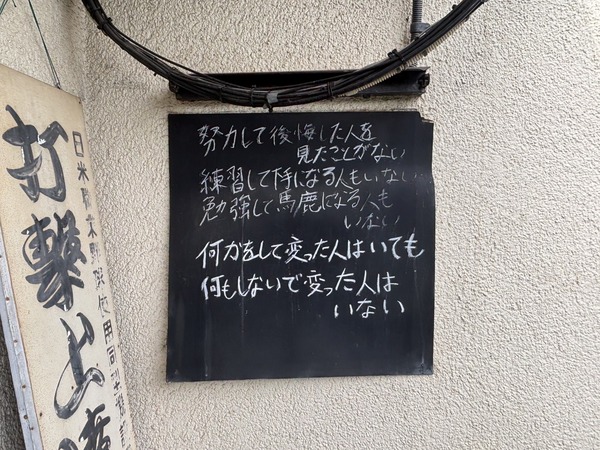 努力して後悔した人を
見たことがない
練習して下手になる人もいない
勉強して馬鹿になる人も
いない
何かをして変った人はいても
何もしないで変った人は
いない
打撃上達